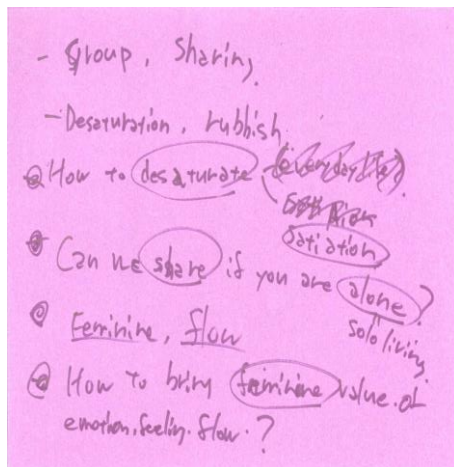 - Group, Sharing
- Desaturation, rubbish
How to desaturate (everyday life)
satiation
Can we share if you are alone?
solo living
Feminine, flow
How to bring feminine value of
emotion, feeling, flow.?